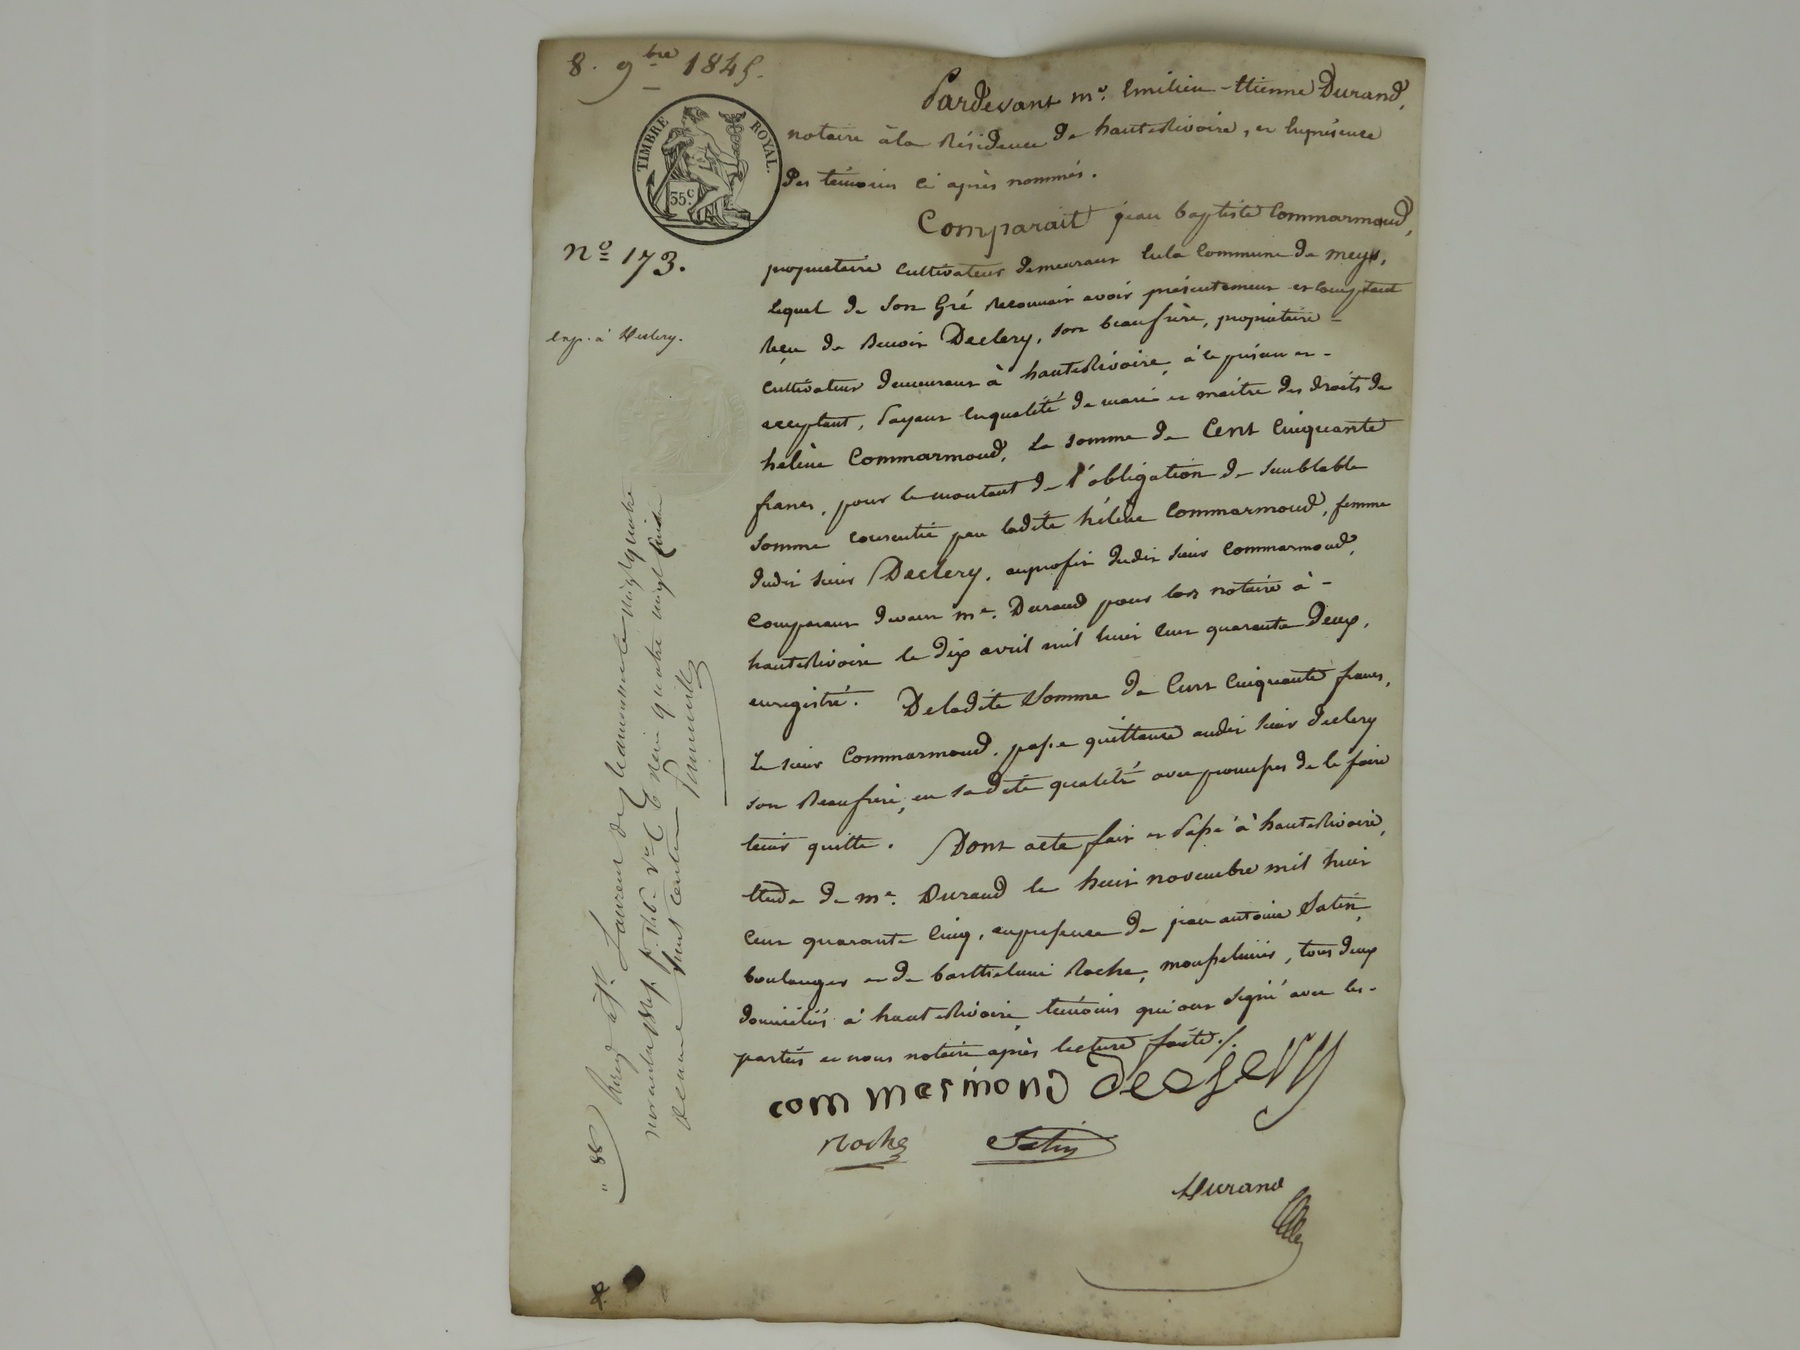 8. 9bre 1845.
TIMBRE ROYAL.
35c.
No 173.
exp. à Declery.
Pardevant me. Emilien-Etienne Durand,
notaire à la Résidence de hauterivoire, et En présence
des témoins ci après nommés.
Comparait jean baptiste Commarmond,
propriétaire cultivateur demeurant En la Commune de meys,
lequel de Son Gré Reconnait avoir présentement et comptant
Reçu de Benoit Declery, son beaufrère, propriétaire-
cultivateur demeurant à hauterivoire, à ce présent et-
acceptant, Payant En qualité de mari et maitre des droits de
hélène Commarmond, La Somme de Cent Cinquante
francs, pour le montant de l'obligation de Semblable
Somme consentie par ladite hélène Commarmond, femme
dudit Sieur Declery, au profit dudit Sieur Commarmond,
Comparant devant me. Durand pour lors notaire à-
hauterivoire le dix avril mil huit Cent quarante Deux,
enregistré. De ladite Somme de Cent Cinquante francs,
Le sieur Commarmond, passe quittance audit Sieur declery
son Beaufrère, en sa dite qualité avec promesses de le faire
tenir quitte. Dont acte fait et Passé à hauterivoire,
Etude de me. Durand le huit novembre mil huit
Cent quarante Cinq, en présence de jean antoine Satin,
boulanger et de barthelemi Roche, mousselinier, tous deux
domiciliés à hauterivoire, témoins qui ont Signé avec les-
parties et nous notaire après lecture faite./.
commermond declery
Roche Satin
Durand
Enreg. à St. Laurent de Chamousset le vingt quatre
novembre 1845 fo. 76 Vo C 6 Reçu quatre vingt
Décime huit centimes